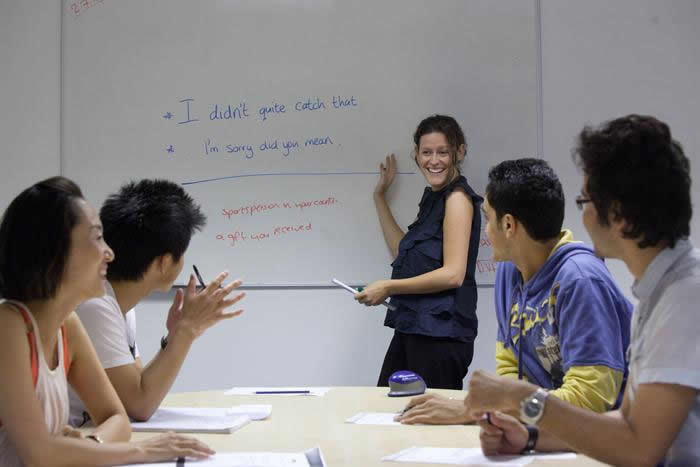 27.
* I didn't quite catch that
* I'm sorry did you mean.
sportsperson in your
a gift you received